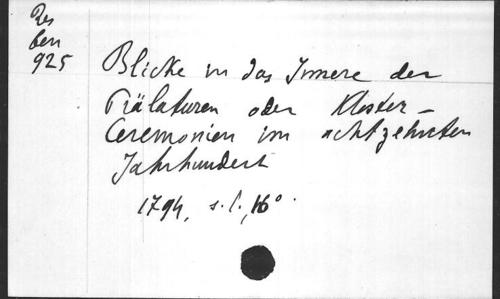 Res
ben
925
Blicke in das Innere der
Prälaturen oder Kloster-
Ceremonien im achtzehnten
Jahrhundert
1794, s. l., 16°.